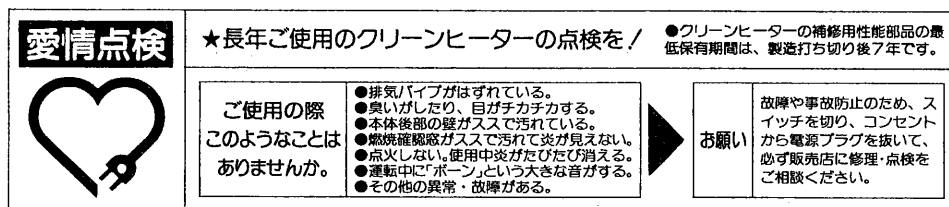 愛情点検
★長年ご使用のクリーンヒーターの点検を！
●クリーンヒーターの補修用性能部品の最
低保有期間は、製造打ち切り後7年です。
ご使用の際
このようなことは
ありませんか。
●排気パイプがはずれている。
●臭いがしたり、目がチカチカする。
●本体後部の壁がススで汚れている。
●燃焼確認窓がススで汚れて炎が見えない。
●点火しない。使用中炎がたびたび消える。
●運転中に「ボーン」という大きな音がする。
●その他の異常・故障がある。
お願い
故障や事故防止のため、ス
イッチを切り、コンセント
から電源プラグを抜いて、
必ず販売店に修理・点検を
ご相談ください。